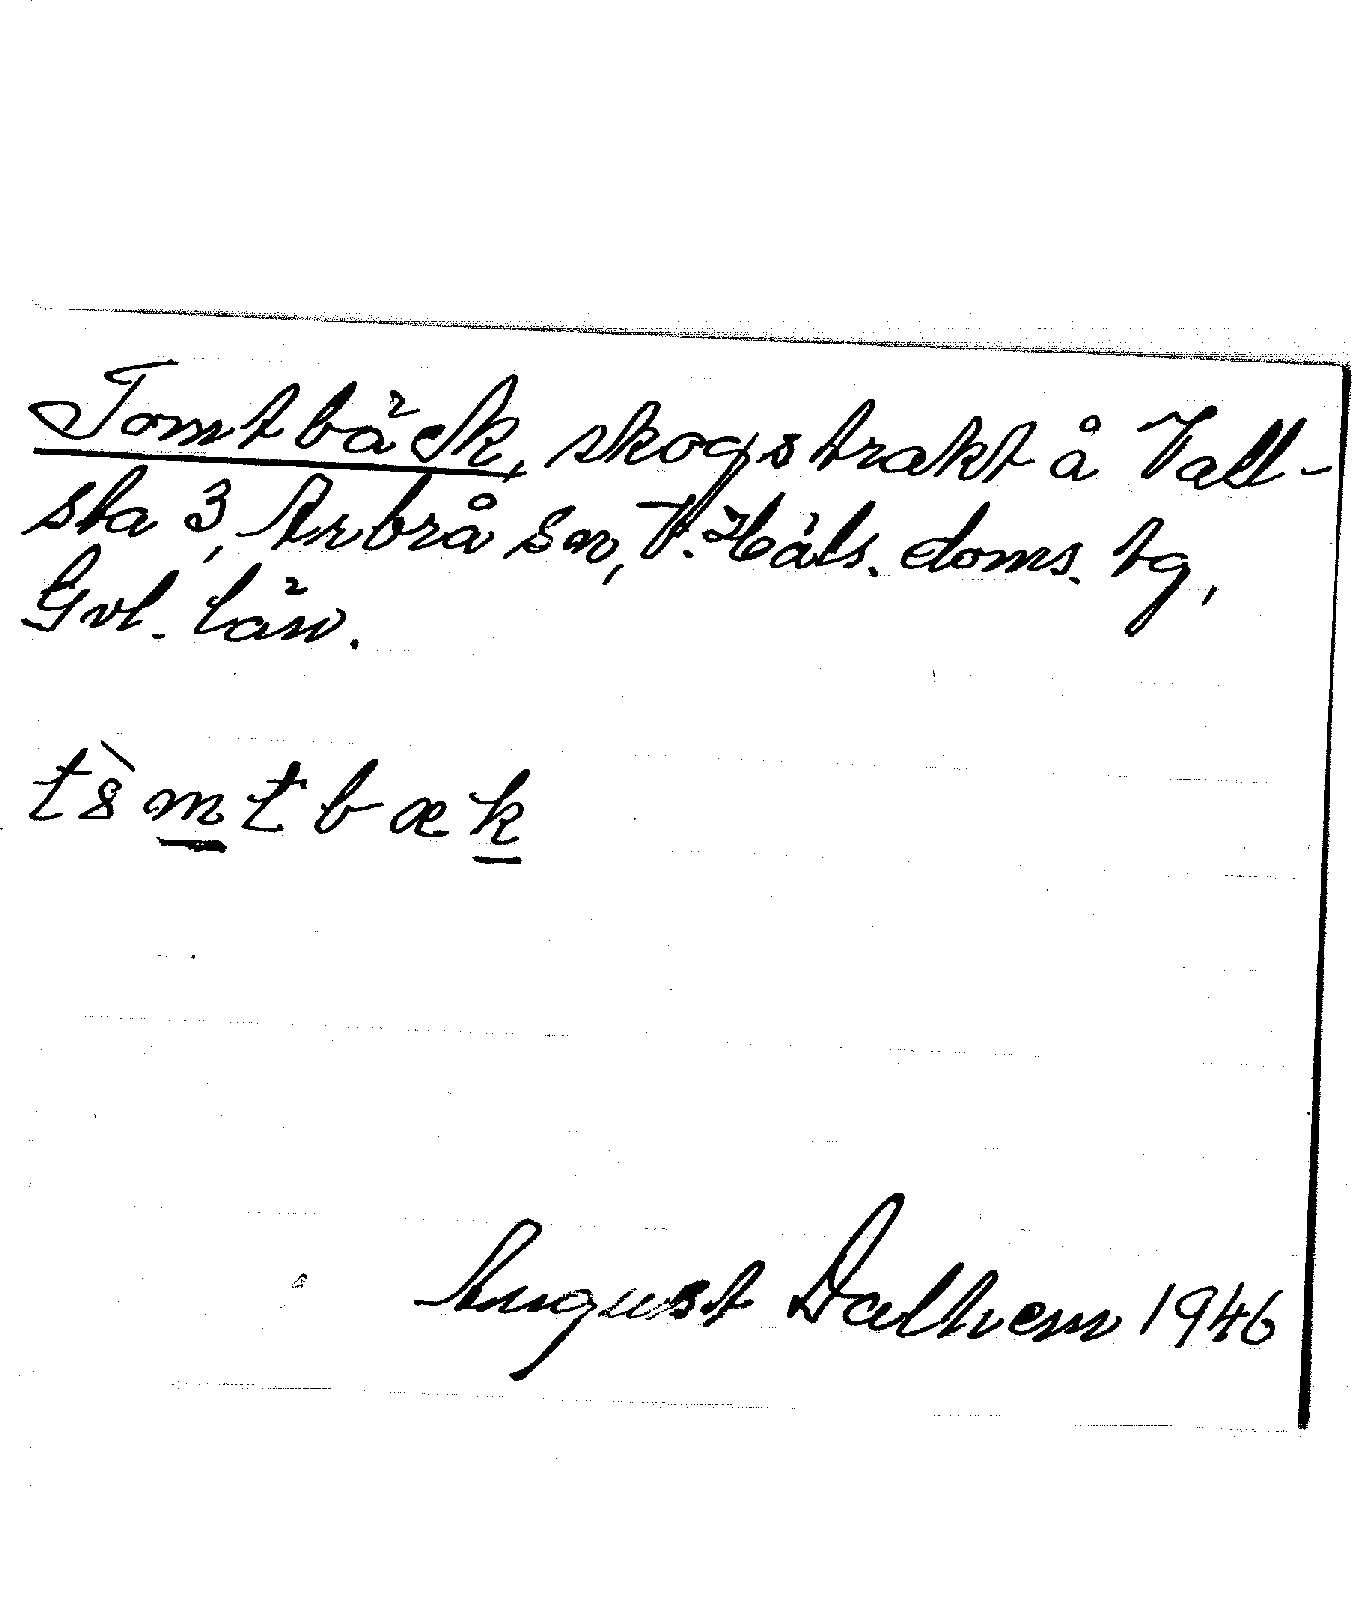 Tomtbäck, skogstrakt å Vall-
sta 3, Arbrå sn, V. Häls. doms. tg,
Gvl. län.
tò̀mtbæk
August Dalhem 1946